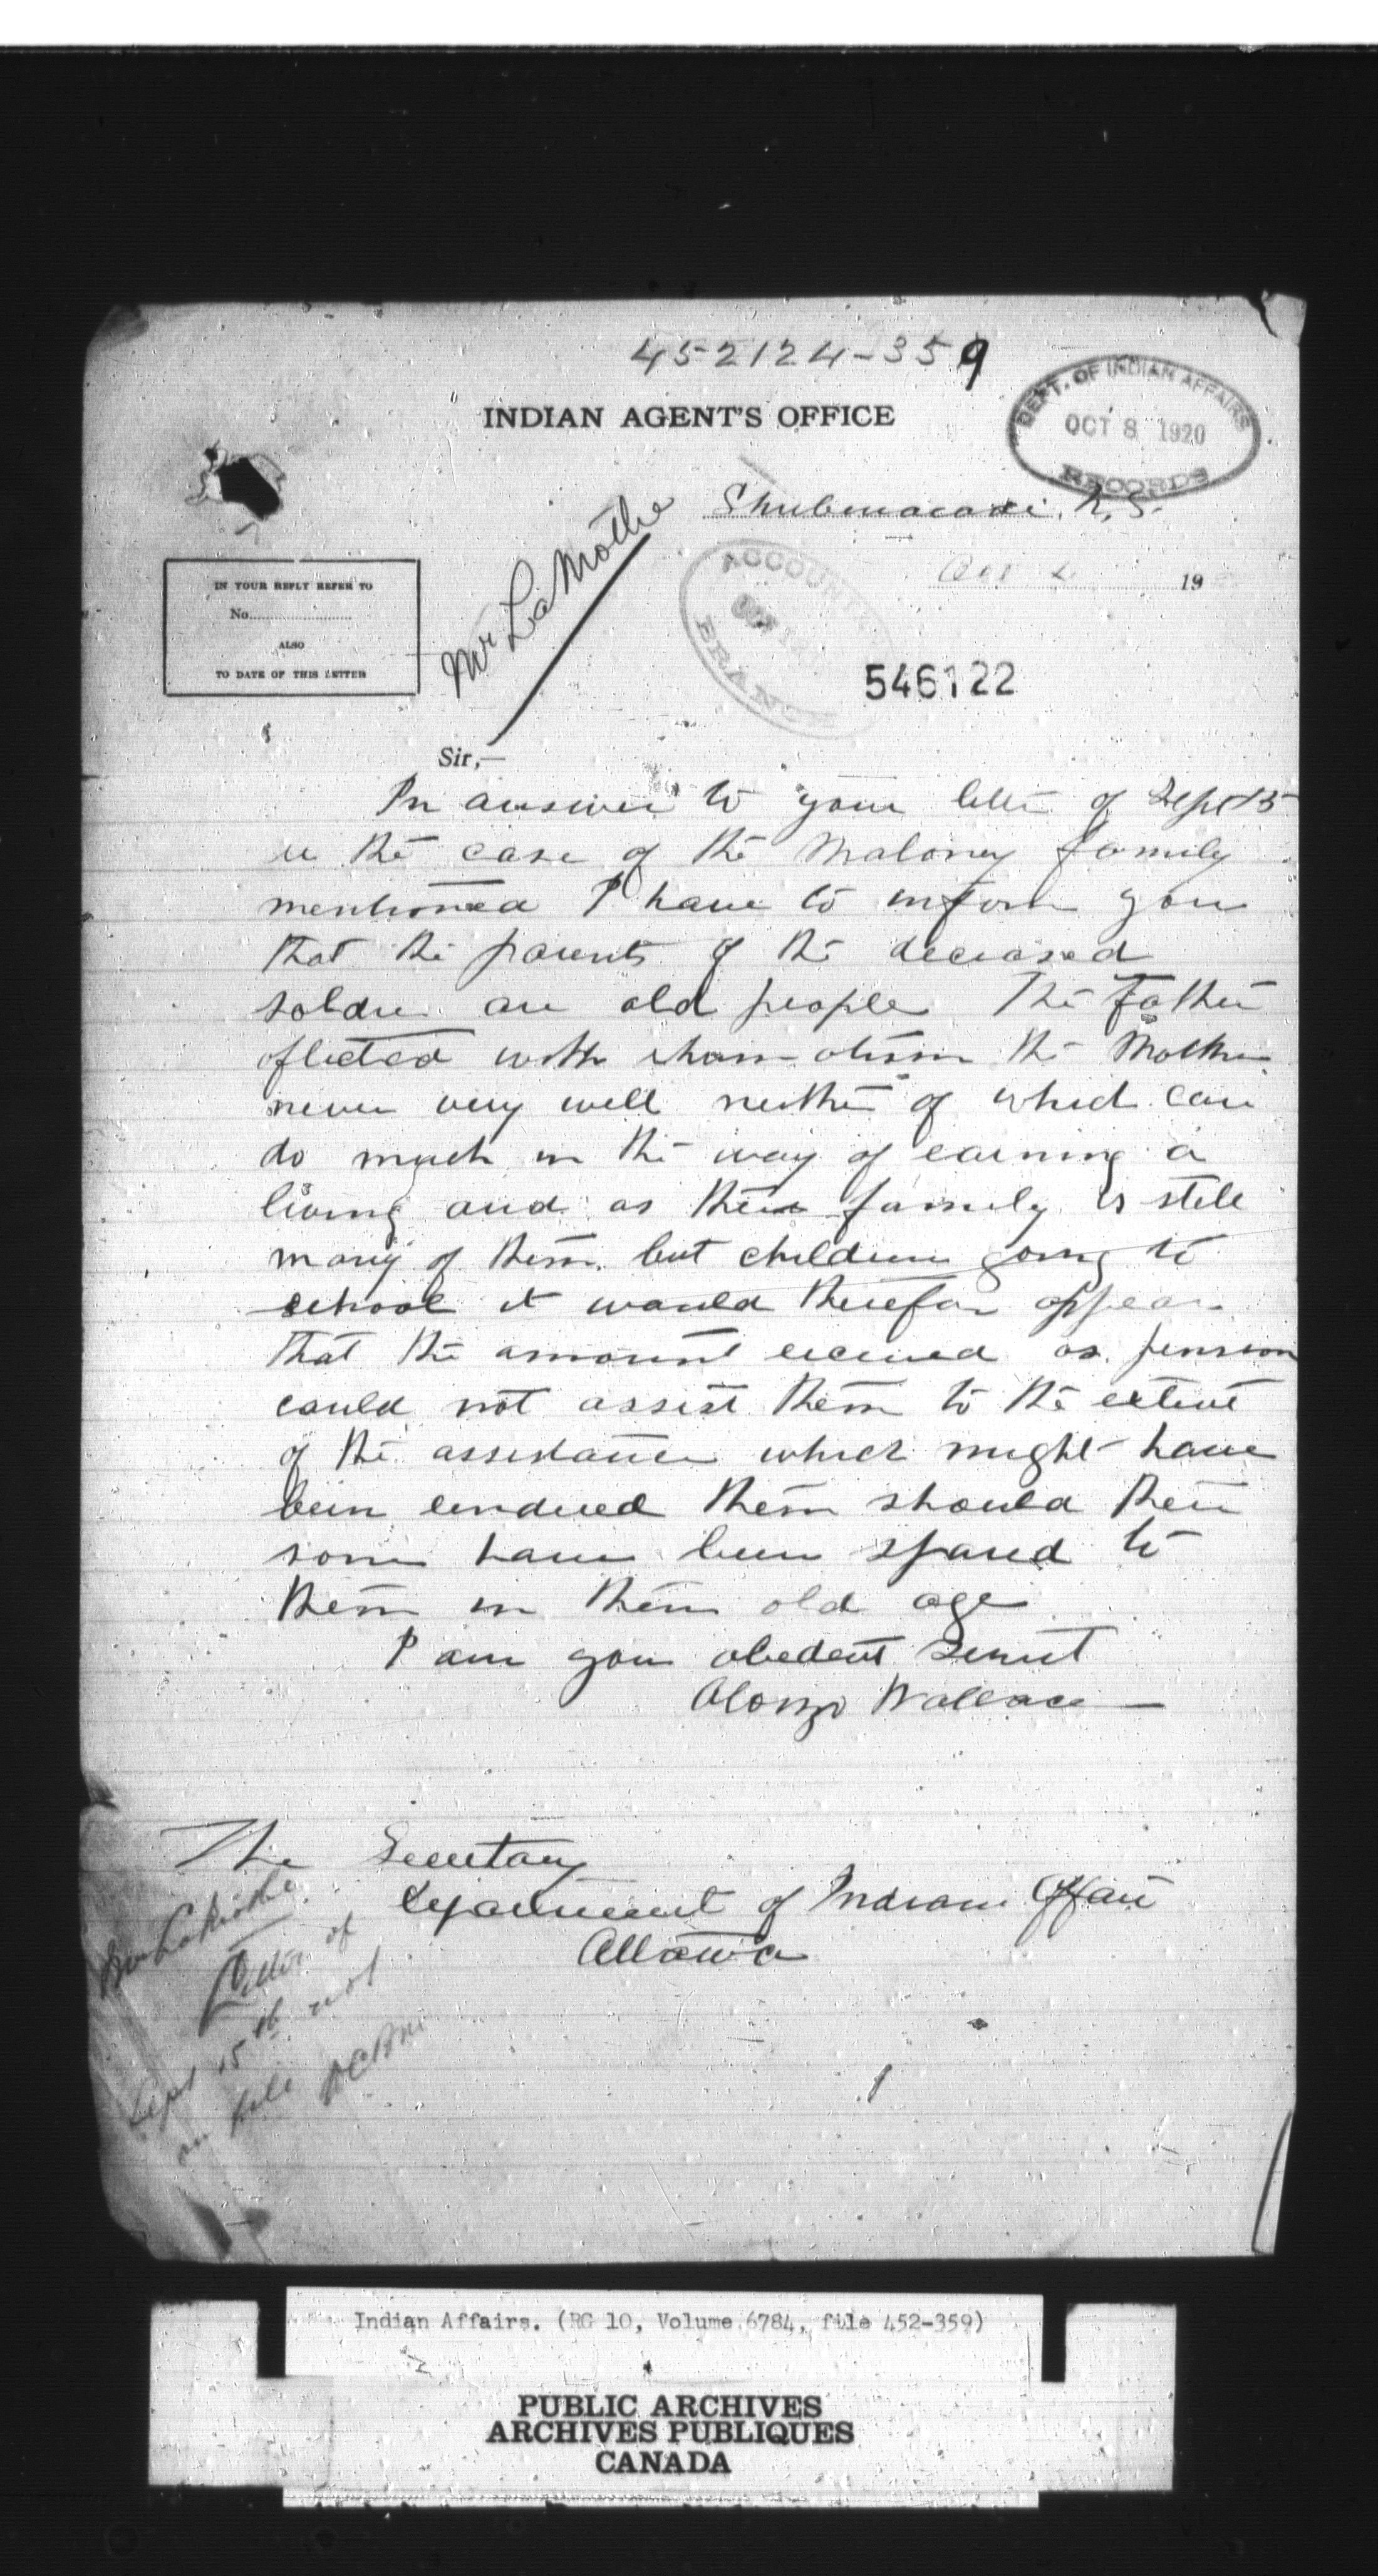 452124-359
INDIAN AGENT'S OFFICE
DEPT. OF INDIAN AFFAIRS
OCT 8 1920
RECORDS
Shubenacadie, N.S.
Mr LaMothe
ACCOUNT
OCT
BRANCH
Oct 19
IN YOUR REPLY REFER TO
No.
ALSO
TO DATE OF THIS LETTER
546122
Sir,—
In answer to your letter of Sept 15
re the case of the Maloney family
mentioned I have to inform you
that the parents of the deceased
soldier are old people The Father
aflected with rhumatism the Mother
never very well neither of which can
do much in the way of earning a
living and as their family is still
many of them but children going to
school it would therefor appear
that the amount received as pension
could not assist them to the extent
of the assistance which might have
been rendered them should their
sons have been spared to
them in their old age
I am your obedent servnt
Alonzo Wallace
The Secretary
Department of Indian Affairs
Ottawa
Mr LaMothe
Letter of
Sept 15th not
on file
1
Indian Affairs. (RG 10, Volume 6784, file 452-359)
PUBLIC ARCHIVES
ARCHIVES PUBLIQUES
CANADA